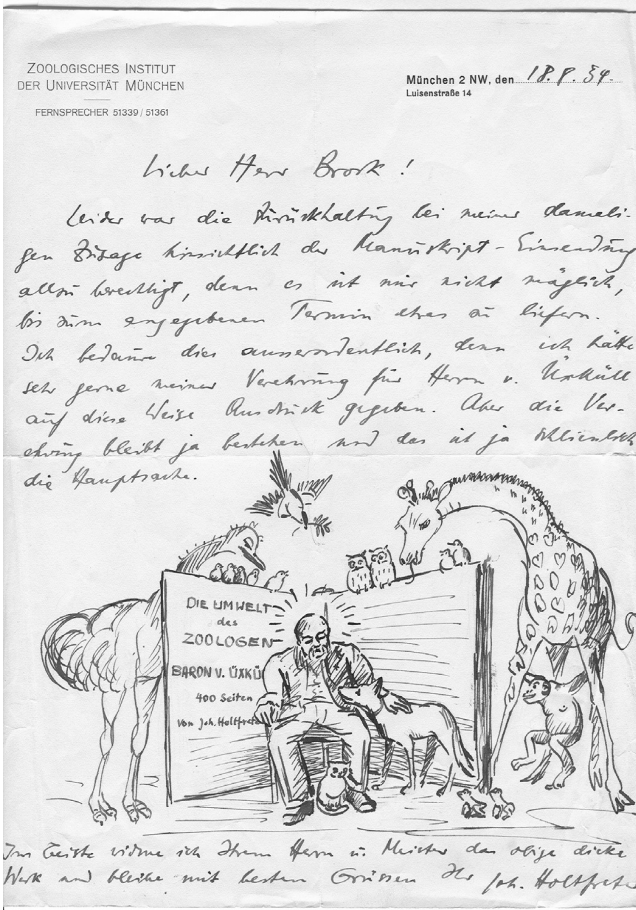 ZOOLOGISCHES INSTITUT
DER UNIVERSITÄT MÜNCHEN
FERNSPRECHER 51339 / 51361
München 2 NW, den 18.8.34.
Luisenstraße 14
Lieber Herr Brock!
Leider war die Zurückhaltung bei meiner damali-
gen Zusage hinsichtlich der Manuskript-Einsendung
allzu berechtigt, denn es ist mir nicht möglich,
bis zum angegebenen Termin etwas zu liefern.
Ich bedaure dies ausserordentlich, denn ich hätte
sehr gerne meiner Verehrung für Herrn v. Üxküll
auf diese Weise Ausdruck gegeben. Aber die Ver-
ehrung bleibt ja bestehen und das ist ja schliesslich
die Hauptsache.
DIE UMWELT
des
ZOOLOGEN
BARON V. ÜXKÜ
400 Seiten
von Joh. Holtfrete
Im Geiste widme ich Ihrem Herrn u. Meister das obige dicke
Werk und bleibe mit besten Grüssen Ihr Joh. Holtfreter